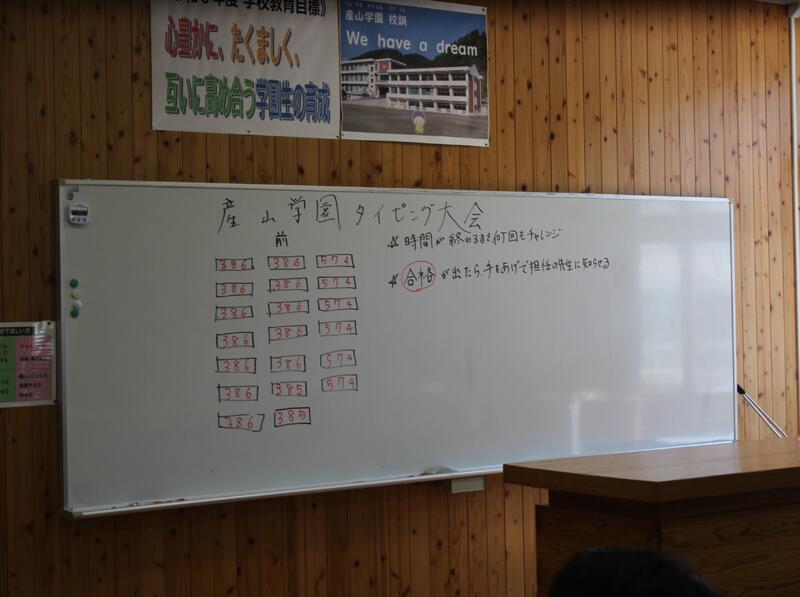 学校教育目標》
心豊かに、たくましく、
互いに高め合う学園生の育成
産山学園 校訓
We have a dream
産山学園タイピング大会
前
☆時間が終わるまで何回もチャレンジ
☆合格が出たら、手をあげて担任の先生に知らせる
386 386 574
386 386 574
386 386 574
386 386 574
386 386 574
386 385 574
386 385